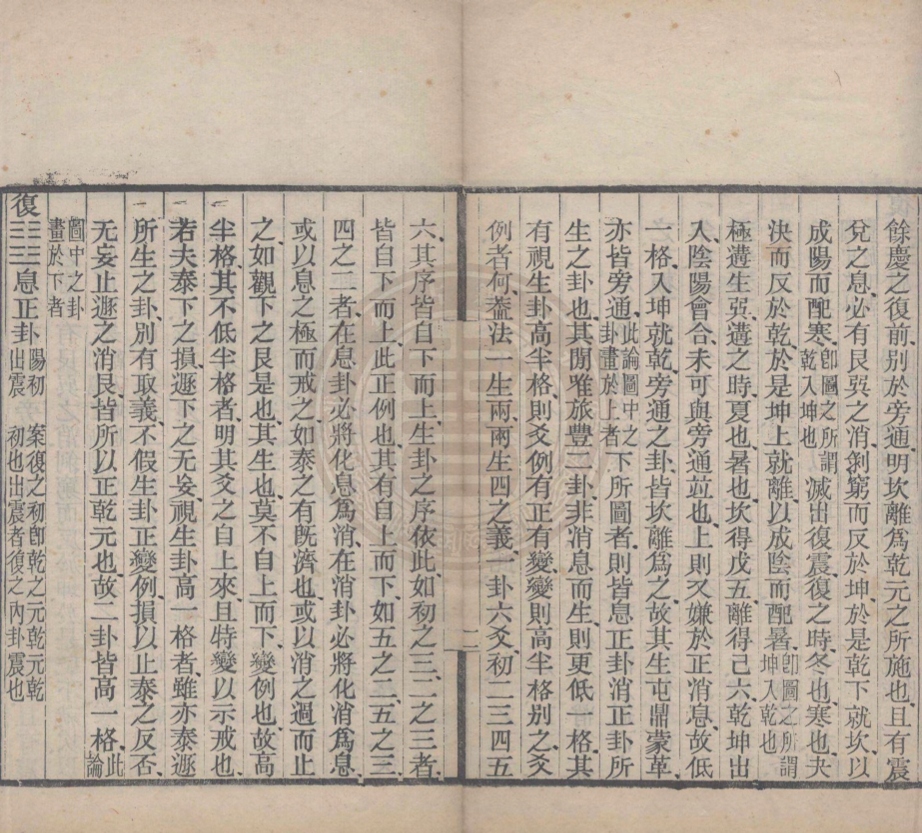 餘慶之復前別於旁通明坎離爲乾元之所施也且有震
兌之息必有艮巽之消剝窮而反於坤於是乾下就坎以
成陽而配寒卽圖之所謂乾入坤也滅出復震復之時冬也寒也夬
決而反於乾於是坤上就離以成陰而配暑卽圖之所謂坤入乾也
極遘生巽遘之時夏也暑也坎得戊五離得己六乾坤出
入陰陽會合未可與旁通竝也上則又嫌於正消息故低
一格入坤就乾旁通之卦皆坎離爲之故其生屯鼎蒙革
亦皆旁通此論圖中之卦畫於上者下所圖者則皆息正卦消正卦所
生之卦也其閒唯旅豐二卦非消息而生則更低一格其
有視生卦高半格則爻例有正有變變則高半格別之爻
例者何葢法一生兩兩生四之義一卦六爻初二三四五
二
六其序皆自下而上生卦之序依此如初之三二之三者
皆自下而上此正例也其有自上而下如五之二五之三
四之二者在息卦必將化息爲消在消卦必將化消爲息
或以息之極而戒之如泰之有旣濟也或以消之過而止
之如觀下之艮是也其生也莫不自上而下變例也故高
半格其不低半格者明其爻之自上來且特變以示戒也
若夫泰下之損遯下之无妄視生卦高一格者雖亦泰遯
所生之卦別有取義不假生卦正變例損以止泰之反否
无妄止遯之消艮皆所以正乾元也故二卦皆高一格此論
圖中之卦畫於下者
復☷☳息正卦陽初出震 案復之初卽乾之元乾元乾初也出震者復之內卦震也